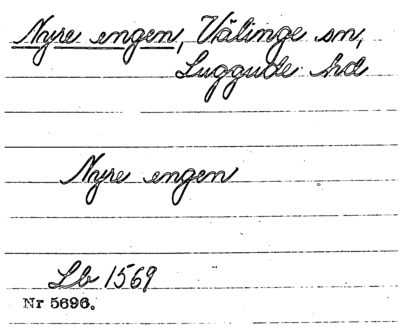 Nyre engen, Välinge sn,
Luggude hd
Nyre engen
Lb 1569
Nr 5696.